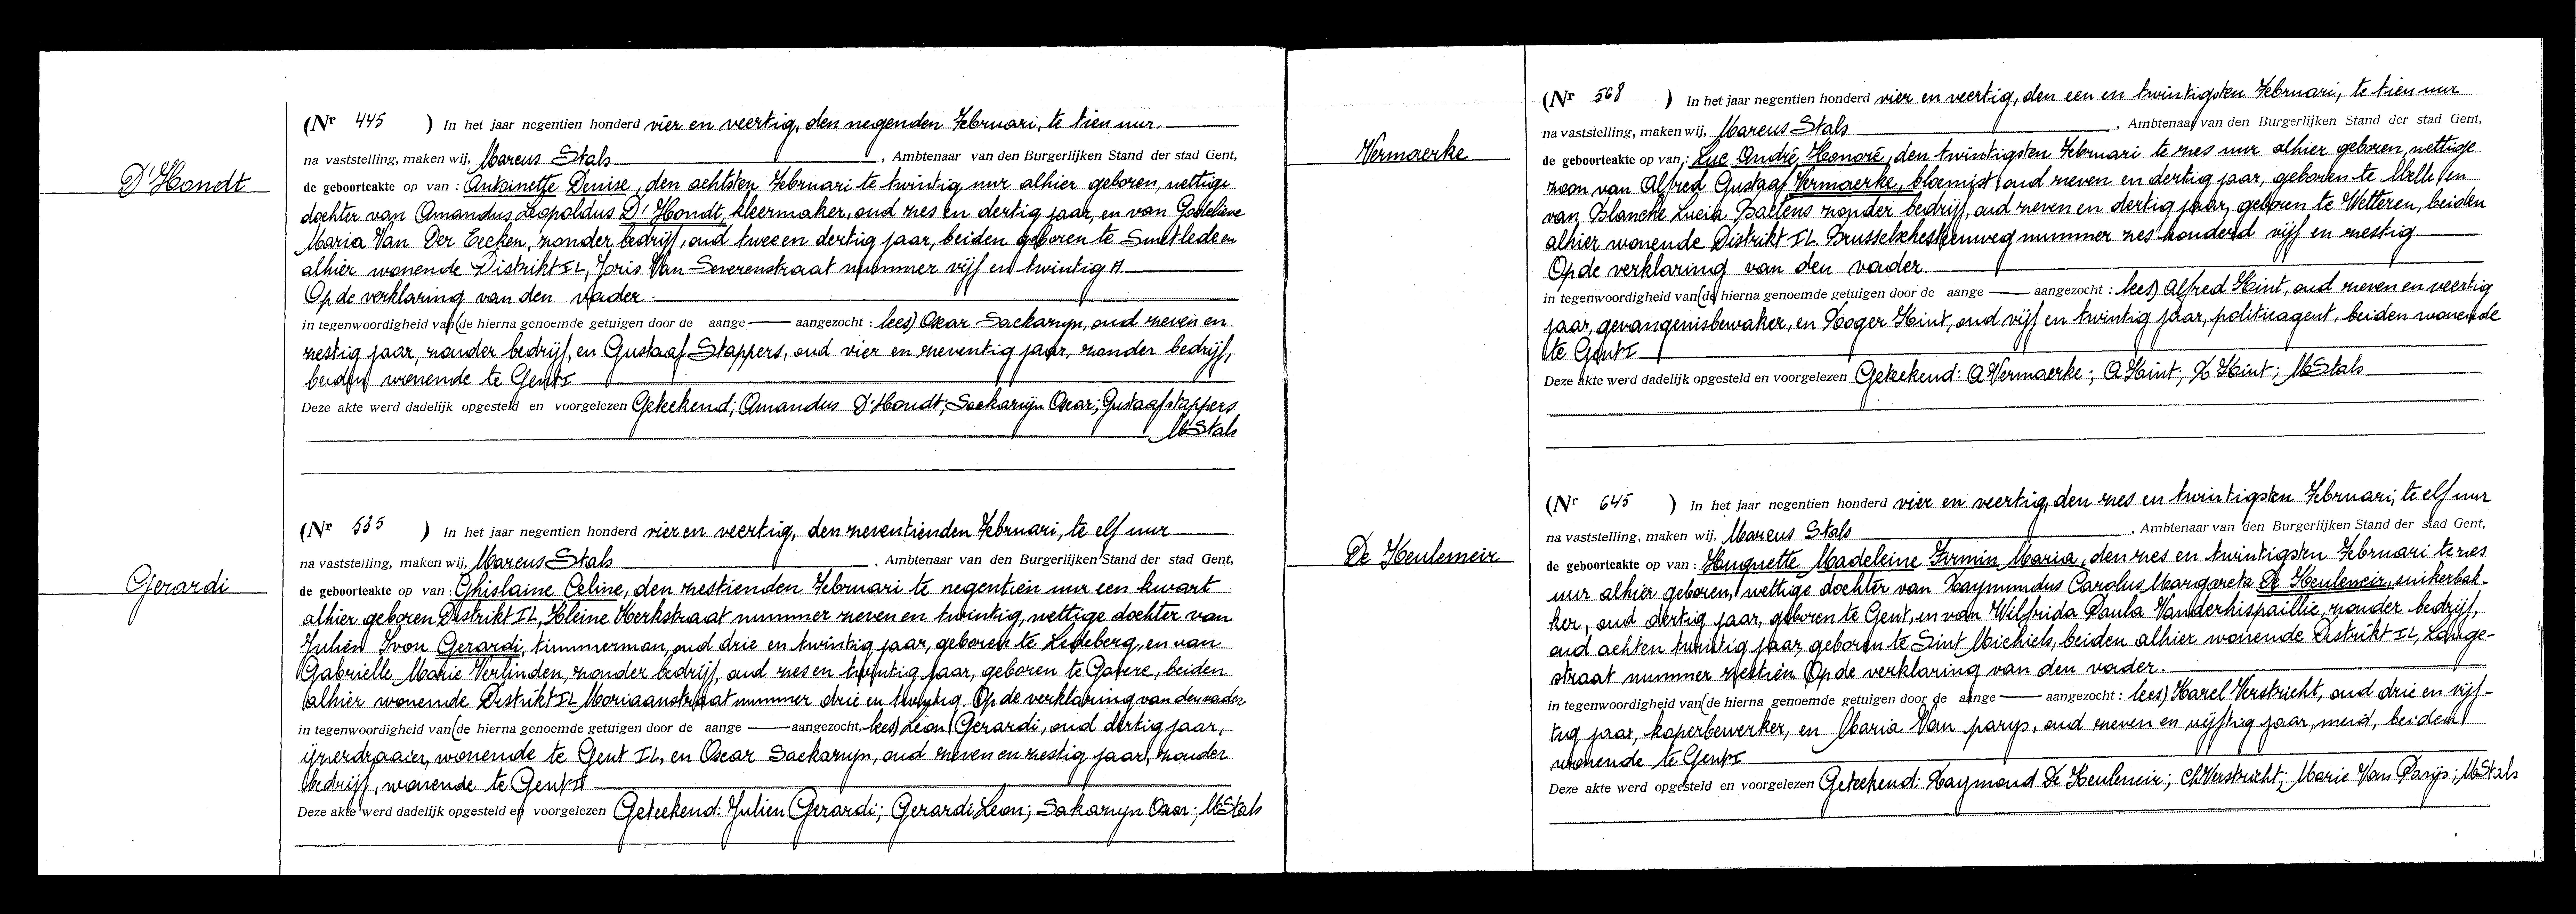 D'Hondt
(Nr 445 ) In het jaar negentien honderd vier en veertig, den negenden Februari, te tien uur.
na vaststelling, maken wij, Marcus Stals , Ambtenaar van den Burgerlijken Stand der stad Gent,
de geboorteakte op van : Antoinette Denise, den achtsten Februari te twintig uur alhier geboren, wettige
dochter van Amandus Leopoldus D'Hondt, kleermaker, oud zes en dertig jaar, en van Godelieve
Maria Van Der Eecken, zonder bedrijf, oud twee en dertig jaar, beiden geboren te Smetlede en
alhier wonende Distrikt II, Joris Van Severenstraat nummer vijf en twintig A.
Op de verklaring van den vader.
in tegenwoordigheid van (de hierna genoemde getuigen door de aange aangezocht : lees) Oscar Sackaryn, oud zeven en
zestig jaar, zonder bedrijf, en Gustaaf Stappers, oud vier en zeventig jaar, zonder bedrijf,
beiden wonende te Gent I
Deze akte werd dadelijk opgesteld en voorgelezen Geteekend; Amandus D'Hondt; Sackarijn Oscar; Gustaaf Stappers
M Stals
Gerardi
(Nr 535 ) In het jaar negentien honderd vier en veertig, den zeventienden Februari, te elf uur
na vaststelling, maken wij, Marcus Stals . Ambtenaar van den Burgerlijken Stand der stad Gent,
de geboorteakte op van : Ghislaine Celine, den zestienden Februari te negentien uur een kwart
alhier geboren Distrikt II, Kleine Kerkstraat nummer zeven en twintig, wettige dochter van
Julien Ivon Gerardi, timmerman, oud drie en twintig jaar, geboren te Ledeberg, en van
Gabrielle Marie Verlinden, zonder bedrijf, oud zes en twintig jaar, geboren te Gavere, beiden
alhier wonende Distrikt II Moriaanstraat nummer drie en twintig. Op de verklaring van den vader
in tegenwoordigheid van (de hierna genoemde getuigen door de aange aangezocht, lees) Leon Gerardi, oud dertig jaar,
ijzerdraaier, wonende te Gent II, en Oscar Sackaryn, oud zeven en zestig jaar, zonder
bedrijf, wonende te Gent I
Deze akte werd dadelijk opgesteld en voorgelezen Geteekend: Julien Gerardi; Gerardi Leon; Sakaryn Oscar; M Stals
Vermaerke
(Nr 568 ) In het jaar negentien honderd vier en veertig, den een en twintigsten Februari, te tien uur
na vaststelling, maken wij, Marcus Stals , Ambtenaar van den Burgerlijken Stand der stad Gent,
de geboorteakte op van : Luc André Honoré, den twintigsten Februari te zes uur alhier geboren, wettige
zoon van Alfred Gustaaf Vermaerke, bloemist, oud zeven en dertig jaar, geboren te Melle, en
van Blanche Lucia Baetens zonder bedrijf, oud zeven en dertig jaar, geboren te Wetteren, beiden
alhier wonende Distrikt II Brusselschesteenweg nummer zes honderd vijf en zestig.
Op de verklaring van den vader.
in tegenwoordigheid van (de hierna genoemde getuigen door de aange aangezocht : lees) Alfred Hint, oud zeven en veertig
jaar, gevangenisbewaker, en Roger Hint, oud vijf en twintig jaar, politieagent, beiden wonende
te Gent I
Deze akte werd dadelijk opgesteld en voorgelezen Geteekend: A Vermaerke; A Hint; R Hint; M Stals
De Keulemeir
(Nr 645 ) In het jaar negentien honderd vier en veertig, den zes en twintigsten Februari, te elf uur
na vaststelling, maken wij, Marcus Stals . Ambtenaar van den Burgerlijken Stand der stad Gent,
de geboorteakte op van : Huguette Madeleine Firmin Maria, den zes en twintigsten Februari te zes
uur alhier geboren, wettige dochter van Raymundus Carolus Margareta De Keulemeir, suikerbak-
ker, oud dertig jaar, geboren te Gent, en van Wilfrida Paula Vanderhispaillie, zonder bedrijf,
oud acht en twintig jaar, geboren te Sint Michiels, beiden alhier wonende Distrikt II, Lange-
straat nummer zestien Op de verklaring van den vader.
in tegenwoordigheid van (de hierna genoemde getuigen door de aange aangezocht : lees) Karel Verstricht, oud drie en vijf-
tig jaar, koperbewerker, en Maria Van parys, oud zeven en vijftig jaar, meid, beiden
wonende te Gent I
Deze akte werd opgesteld en voorgelezen Geteekend: Raymond De Keulemeir; Ch Verstricht; Marie Van Parijs; M Stals